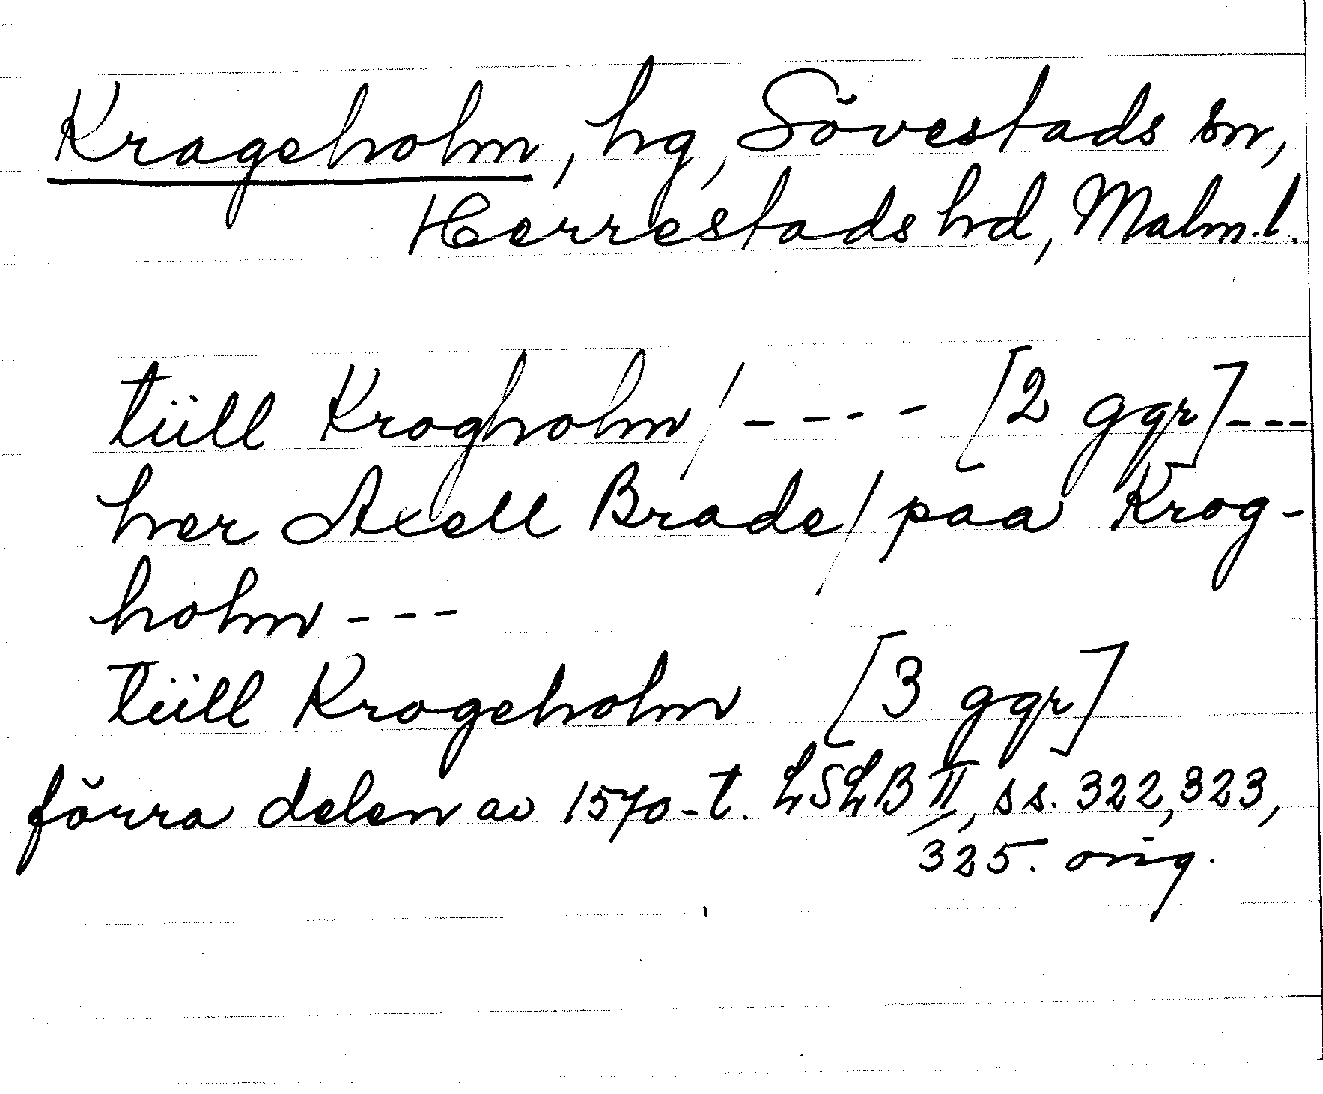 Krageholm, hg, Sövestads sn,
Herrestads hd, Malm.l.
tüll Krogholm / ---- [2 ggr] ---
her Axell Brade / paa Krog-
holm ---
tüll Krogeholm [3 ggr]
förra delen av 1570-t. LSLB II, ss. 322, 323,
325. orig.